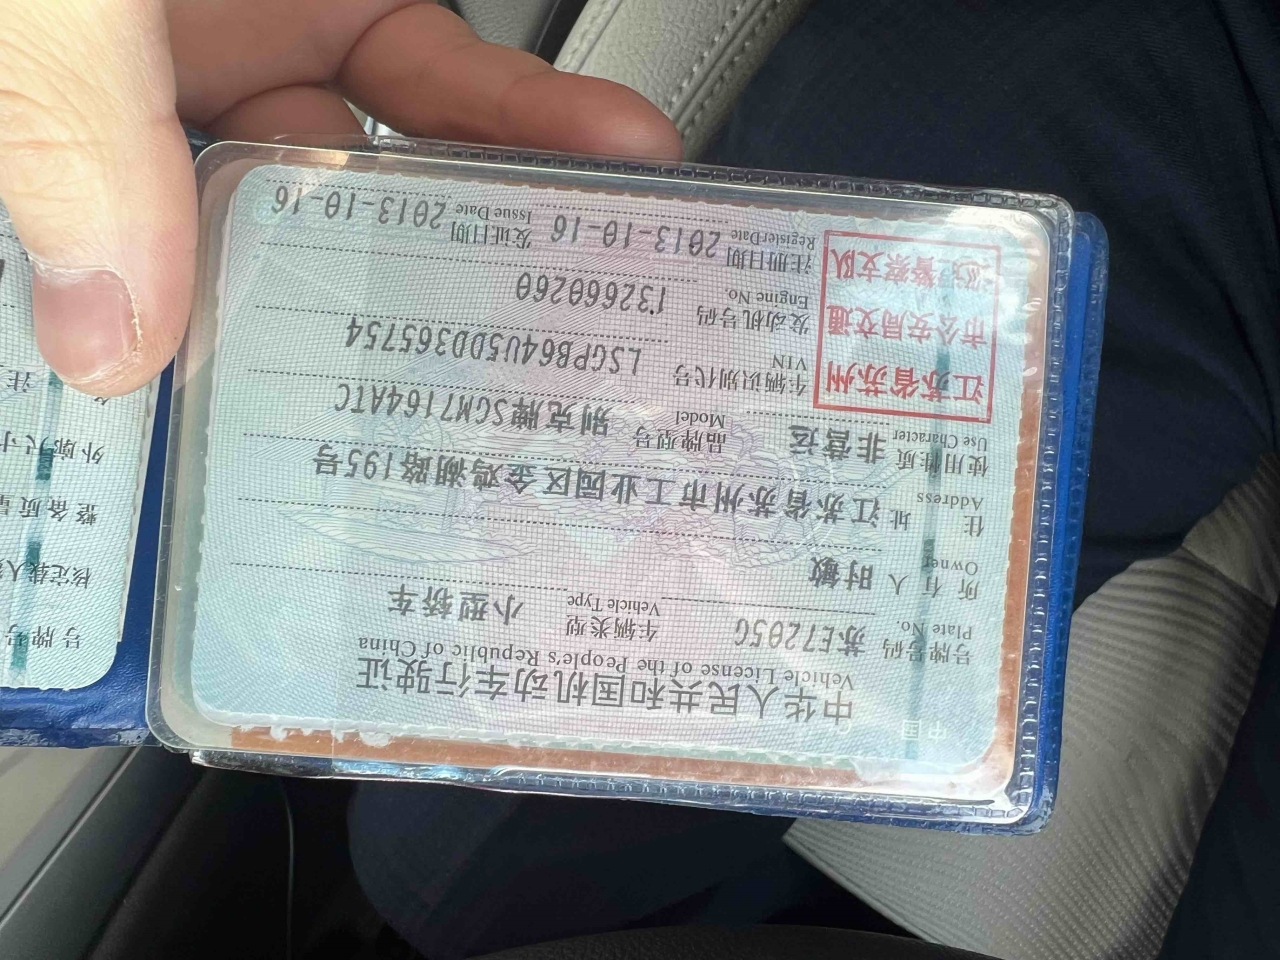 中国
中华人民共和国机动车行驶证
Vehicle License of the People's Republic of China
号牌号码 苏E7205G 车辆类型 小型轿车
Plate No. Vehicle Type
所有人 时敏
Owner
住址 江苏省苏州市工业园区金鸡湖路195号
Address
使用性质 非营运 品牌型号 别克牌SGM7164ATC
Use Character Model
江苏省苏州
市公安局交通
警察支队
车辆识别代号 LSGPB64U5DD365754
VIN
发动机号码 132660260
Engine No.
注册日期 2013-10-16 发证日期 2013-10-16
Register Date Issue Date
号牌号
核定载人
整备质量
外廓尺寸